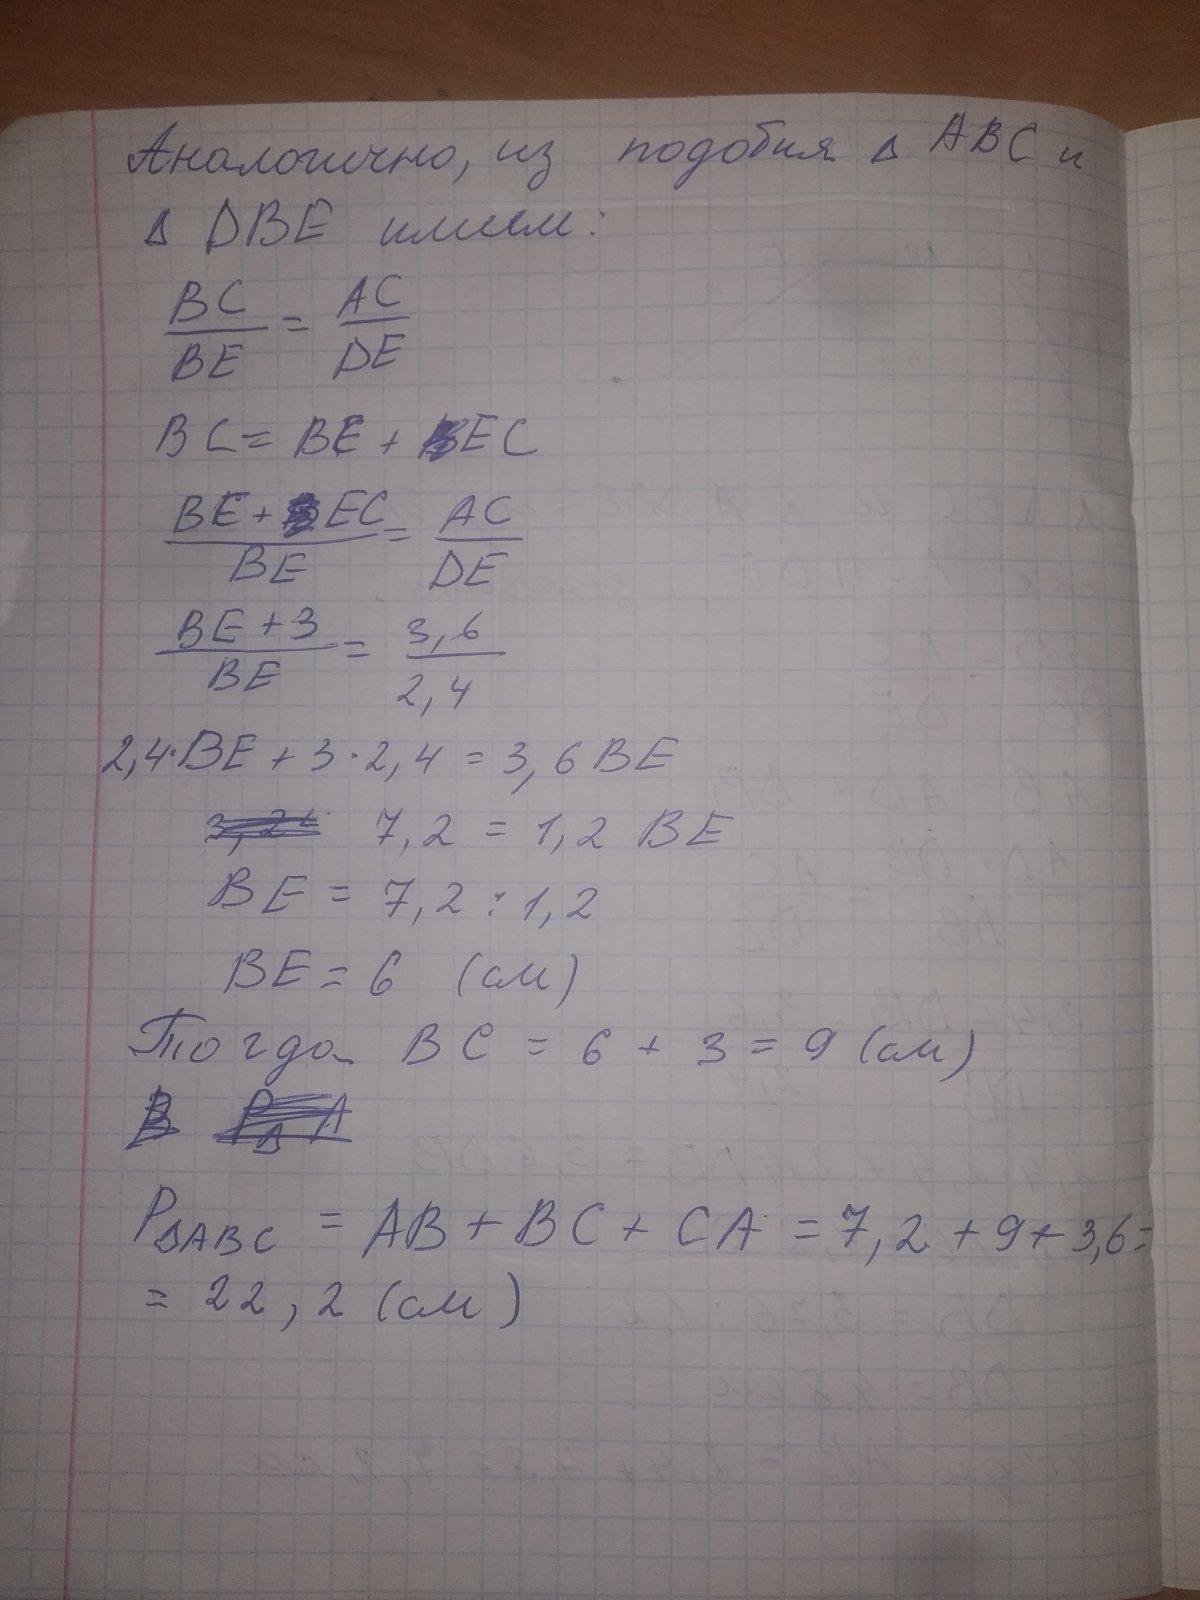 Аналогично, из подобия Δ ABC и
Δ DBE имеем:
BC/BE = AC/DE
BC = BE + EC
BE + EC/BE = AC/DE
BE + 3/BE = 3,6/2,4
2,4·BE + 3·2,4 = 3,6 BE
7,2 = 1,2 BE
BE = 7,2 : 1,2
BE = 6 (см)
Тогда BC = 6 + 3 = 9 (см)
PΔABC = AB + BC + CA = 7,2 + 9 + 3,6 =
= 22,2 (см)